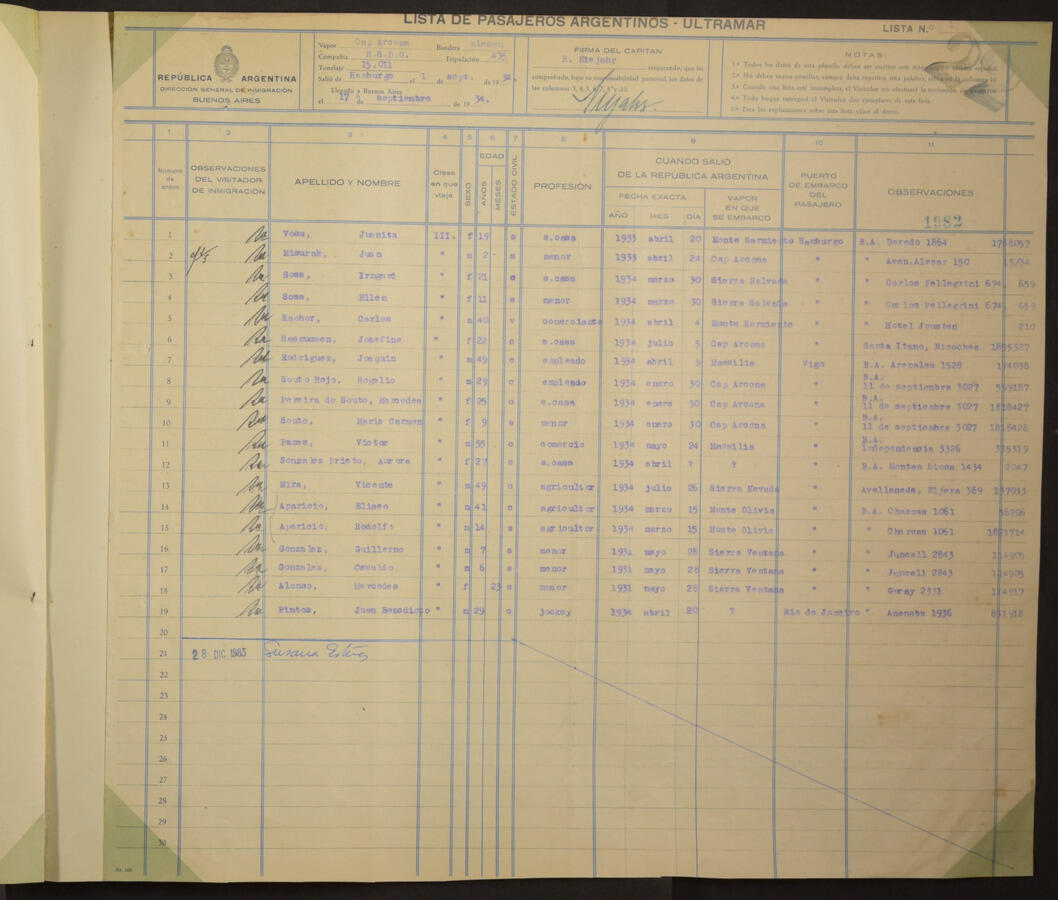 LISTA DE PASAJEROS ARGENTINOS - ULTRAMAR
LISTA N.º
22
REPÚBLICA ARGENTINA
DIRECCIÓN GENERAL DE INMIGRACIÓN
BUENOS AIRES
Vapor Cap Arcona Bandera aleman
Compañía H.S.D.G. Tripulación 435
Tonelaje 15.011
Salió de Hamburgo el 1 de sept. de 1934.
Llegado a Buenos Aires
el 17 de septiembre de 1934.
FIRMA DEL CAPITAN
R. Niejahr, asegurando, que ha
comprobado, bajo su responsabilidad personal, los datos de
las columnas 3, 4, 5, 6, 7, 8 y 10.
Niejahr
NOTAS:
1.ª Todos los datos de esta planilla deben ser escritos con
2.ª No deben usarse comillas, aunque deba repetirse una palabra, salvo en la columna 10.
3.ª Cuando una lista esté incompleta, el Visitador no efectuará la revisación de pasajeros.
4.ª Todo buque entregará al Visitador dos ejemplares de esta lista.
5.ª Para las explicaciones sobre esta lista véase al dorso.
1 2 3 4 5 6 7 8 9 10 11
Número de orden
OBSERVACIONES DEL VISITADOR DE INMIGRACIÓN
APELLIDO Y NOMBRE
Clase en que viaja
SEXO
EDAD
AÑOS
MESES
ESTADO CIVIL
PROFESIÓN
CUANDO SALIÓ DE LA REPÚBLICA ARGENTINA
FECHA EXACTA
AÑO MES DÍA
VAPOR EN QUE SE EMBARCO
PUERTO DE EMBARCO DEL PASAJERO
OBSERVACIONES
1982
1 Voss, Juanita III. f 19 s s.casa 1933 abril 20 Monte Sarmiento Hamburgo B.A. Deredo 1864 1768057
2 Misurak, Juan " m 2 s menor 1933 abril 24 Cap Arcona " " Aven.Alvear 150
3 Sosa, Irmgard " f 21 s.casa 1934 marzo 30 Sierra Salvada " " Carlos Pellegrini 674 659
4 Sosa, Ellen " f 11 s menor 1934 marzo 30 Sierra Salvada " " Carlos Pellegrini 674 659
5 Carlos " m 40 v comerciante 1934 abril 4 Monte Sarmiento " " Hotel Jousten 210
6 Rasmussen, Josefine " f 22 s.casa 1934 julio 5 Cap Arcona " Santa
7 Rodriguez, Joaquin " m 49 c empleado 1934 abril 9 Massilia Vigo B.A. Arenales 1528
8 Souto Rojo, Rogelio " m 29 c empleado 1934 enero 30 Cap Arcona " B.A. 11 de septiembre 3027
9 Pereira de Souto, Mercedes " f 25 c s.casa 1934 enero 30 Cap Arcona " B.A. 11 de septiembre 3027 1818427
10 Souto, Maria Carmen " f 9 s menor 1934 enero 30 Cap Arcona " B.A. 11 de septiembre 3027 1818428
11 Pazos, Victor " m 55 c comercio 1934 mayo 24 Massilia " B.A. Independencia 3326
12 Gonzalez Prieto, Aurora " f 27 c s.casa 1934 abril ? ? " B.A. Montes 1434 2047
13 Mira, Vicente " m 49 c agricultor 1934 julio 26 Sierra Nevada " Avellaneda, 389
14 Aparicio, Eliseo " m 41 c agricultor 1934 marzo 15 Monte Olivia " B.A. Charcas 1061
15 Aparicio, Rodolfo " m 14 s agricultor 1934 marzo 15 Monte Olivia " " Charcas 1061
16 Gonzalez, Guillermo " m 7 s menor 1931 mayo 28 Sierra Ventana " " Juncall 2843
17 Gonzalez, Oswaldo " m 6 s menor 1931 mayo 28 Sierra Ventana " " Juncall 2843
18 Alonso, Mercedes " f 23 s menor 1931 mayo 28 Sierra Ventana " " Garay 2331
19 Pintos, Juan Benedicto " m 29 c jockey 1934 abril 20 ? Rio de Janeiro " Amenaba 1936
20
21 28 DIC 1983 Susana Estévez
22
23
24
25
26
27
28
29
30